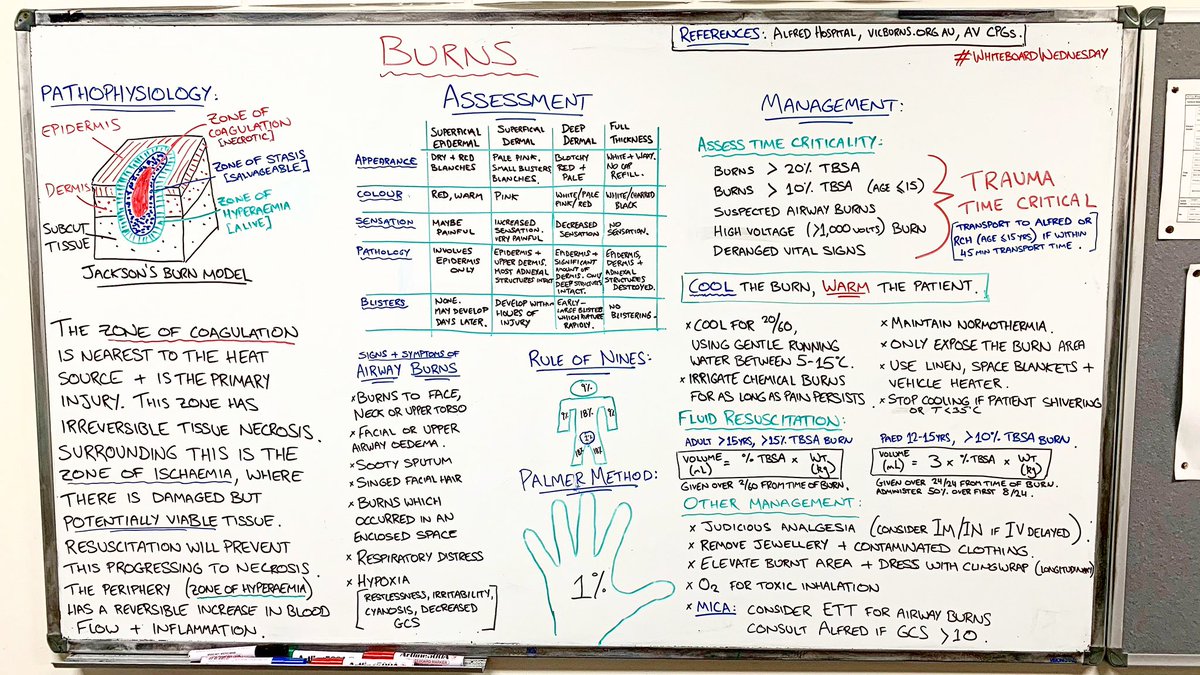 BURNS
REFERENCES: ALFRED HOSPITAL, VICBURNS.ORG AU, AV CPGS.
#WHITEBOARDWEDNESDAY
PATHOPHYSIOLOGY:
EPIDERMIS
DERMIS
SUBCUT
TISSUE
ZONE OF
COAGULATION
[NECROTIC]
ZONE OF STASIS
[SALVAGEABLE]
ZONE OF
HYPERAEMIA
[ALIVE]
JACKSON'S BURN MODEL
THE ZONE OF COAGULATION
IS NEAREST TO THE HEAT
SOURCE + IS THE PRIMARY
INJURY. THIS ZONE HAS
IRREVERSIBLE TISSUE NECROSIS.
SURROUNDING THIS IS THE
ZONE OF ISCHAEMIA, WHERE
THERE IS DAMAGED BUT
POTENTIALLY VIABLE TISSUE.
RESUSCITATION WILL PREVENT
THIS PROGRESSING TO NECROSIS.
THE PERIPHERY (ZONE OF HYPERAEMIA)
HAS A REVERSIBLE INCREASE IN BLOOD
FLOW + INFLAMMATION.
ASSESSMENT
SUPERFICIAL
EPIDERMAL
SUPERFICIAL
DERMAL
DEEP
DERMAL
FULL
THICKNESS
APPEARANCE
DRY + RED
BLANCHES
PALE PINK.
SMALL BLISTERS
BLANCHES.
BLOTCHY
RED +
PALE
WHITE + WAXY.
NO CAP
REFILL.
COLOUR
RED, WARM
PINK
WHITE/PALE
PINK/RED
WHITE/CHARRED
BLACK
SENSATION
MAYBE
PAINFUL
INCREASED
SENSATION.
VERY PAINFUL
DECREASED
SENSATION
NO
SENSATION.
PATHOLOGY
INVOLVES
EPIDERMIS
ONLY
EPIDERMIS +
UPPER DERMIS.
MOST ADNEXAL
STRUCTURES INTACT
EPIDERMIS +
SIGNIFICANT
AMOUNT OF
DERMIS. ONLY
DEEP STRUCTURES
INTACT.
EPIDERMIS,
DERMIS +
ADNEXAL
STRUCTURES
DESTROYED.
BLISTERS
NONE.
MAY DEVELOP
DAYS LATER.
DEVELOP WITHIN
HOURS OF
INJURY
EARLY-
LARGE BLISTERS
WHICH RUPTURE
RAPIDLY.
NO
BLISTERING.
SIGNS + SYMPTOMS OF
AIRWAY BURNS
× BURNS TO FACE,
NECK OR UPPER TORSO
× FACIAL OR UPPER
AIRWAY OEDEMA.
× SOOTY SPUTUM
× SINGED FACIAL HAIR
× BURNS WHICH
OCCURRED IN AN
ENCLOSED SPACE
× RESPIRATORY DISTRESS
× HYPOXIA
[RESTLESSNESS, IRRITABILITY,
CYANOSIS, DECREASED
GCS]
RULE OF NINES:
9%
9% 18% 9%
1%
18% 18%
PALMER METHOD:
1%
MANAGEMENT:
ASSESS TIME CRITICALITY:
BURNS > 20% TBSA
BURNS > 10% TBSA (AGE ≤15)
SUSPECTED AIRWAY BURNS
HIGH VOLTAGE (>1,000 VOLTS) BURN
DERANGED VITAL SIGNS
TRAUMA
TIME CRITICAL
[TRANSPORT TO ALFRED OR
RCH (AGE ≤15 YRS) IF WITHIN
45 MIN TRANSPORT TIME.]
COOL THE BURN, WARM THE PATIENT.
× COOL FOR 20/60,
USING GENTLE RUNNING
WATER BETWEEN 5-15°C.
× IRRIGATE CHEMICAL BURNS
FOR AS LONG AS PAIN PERSISTS.
× MAINTAIN NORMOTHERMIA.
× ONLY EXPOSE THE BURN AREA
× USE LINEN, SPACE BLANKETS +
VEHICLE HEATER.
× STOP COOLING IF PATIENT SHIVERING
OR T<35°C
FLUID RESUSCITATION:
ADULT >15YRS, >15% TBSA BURN
VOLUME (mL) = % TBSA × WT (Kg)
GIVEN OVER 2/60 FROM TIME OF BURN.
PAED 12-15YRS, >10% TBSA BURN.
VOLUME (mL) = 3 × % TBSA × WT (Kg)
GIVEN OVER 24/24 FROM TIME OF BURN.
ADMINISTER 50% OVER FIRST 8/24.
OTHER MANAGEMENT:
× JUDICIOUS ANALGESIA (CONSIDER IM/IN IF IV DELAYED).
× REMOVE JEWELLERY + CONTAMINATED CLOTHING.
× ELEVATE BURNT AREA + DRESS WITH CLINGWRAP (LONGITUDINALLY)
× O2 FOR TOXIC INHALATION
× MICA: CONSIDER ETT FOR AIRWAY BURNS
CONSULT ALFRED IF GCS >10.